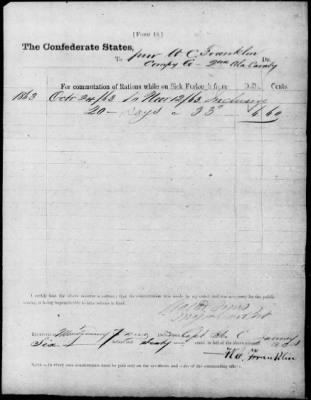 [FORM 18.]
The Confederate States,
To H C Franklin Dr.
Compy A - 2nd Ala Cavalry
For commutation of Rations while on Sick Furlough from Dolls. Cents.
1863 Octr 24/63 to Nov 12/63 Inclusive
20 days @ 33 6.60
I certify that the above account is correct; that the commutation was made by my order, and was necessary for the public
service, it being impracticable to take rations in kind.
Received Montgomery
Six Dollars Sixty cents, in full of the above account.
H. C. Franklin
NOTE.—In every case commutation must be paid only on the certificate and order of the commanding officer.